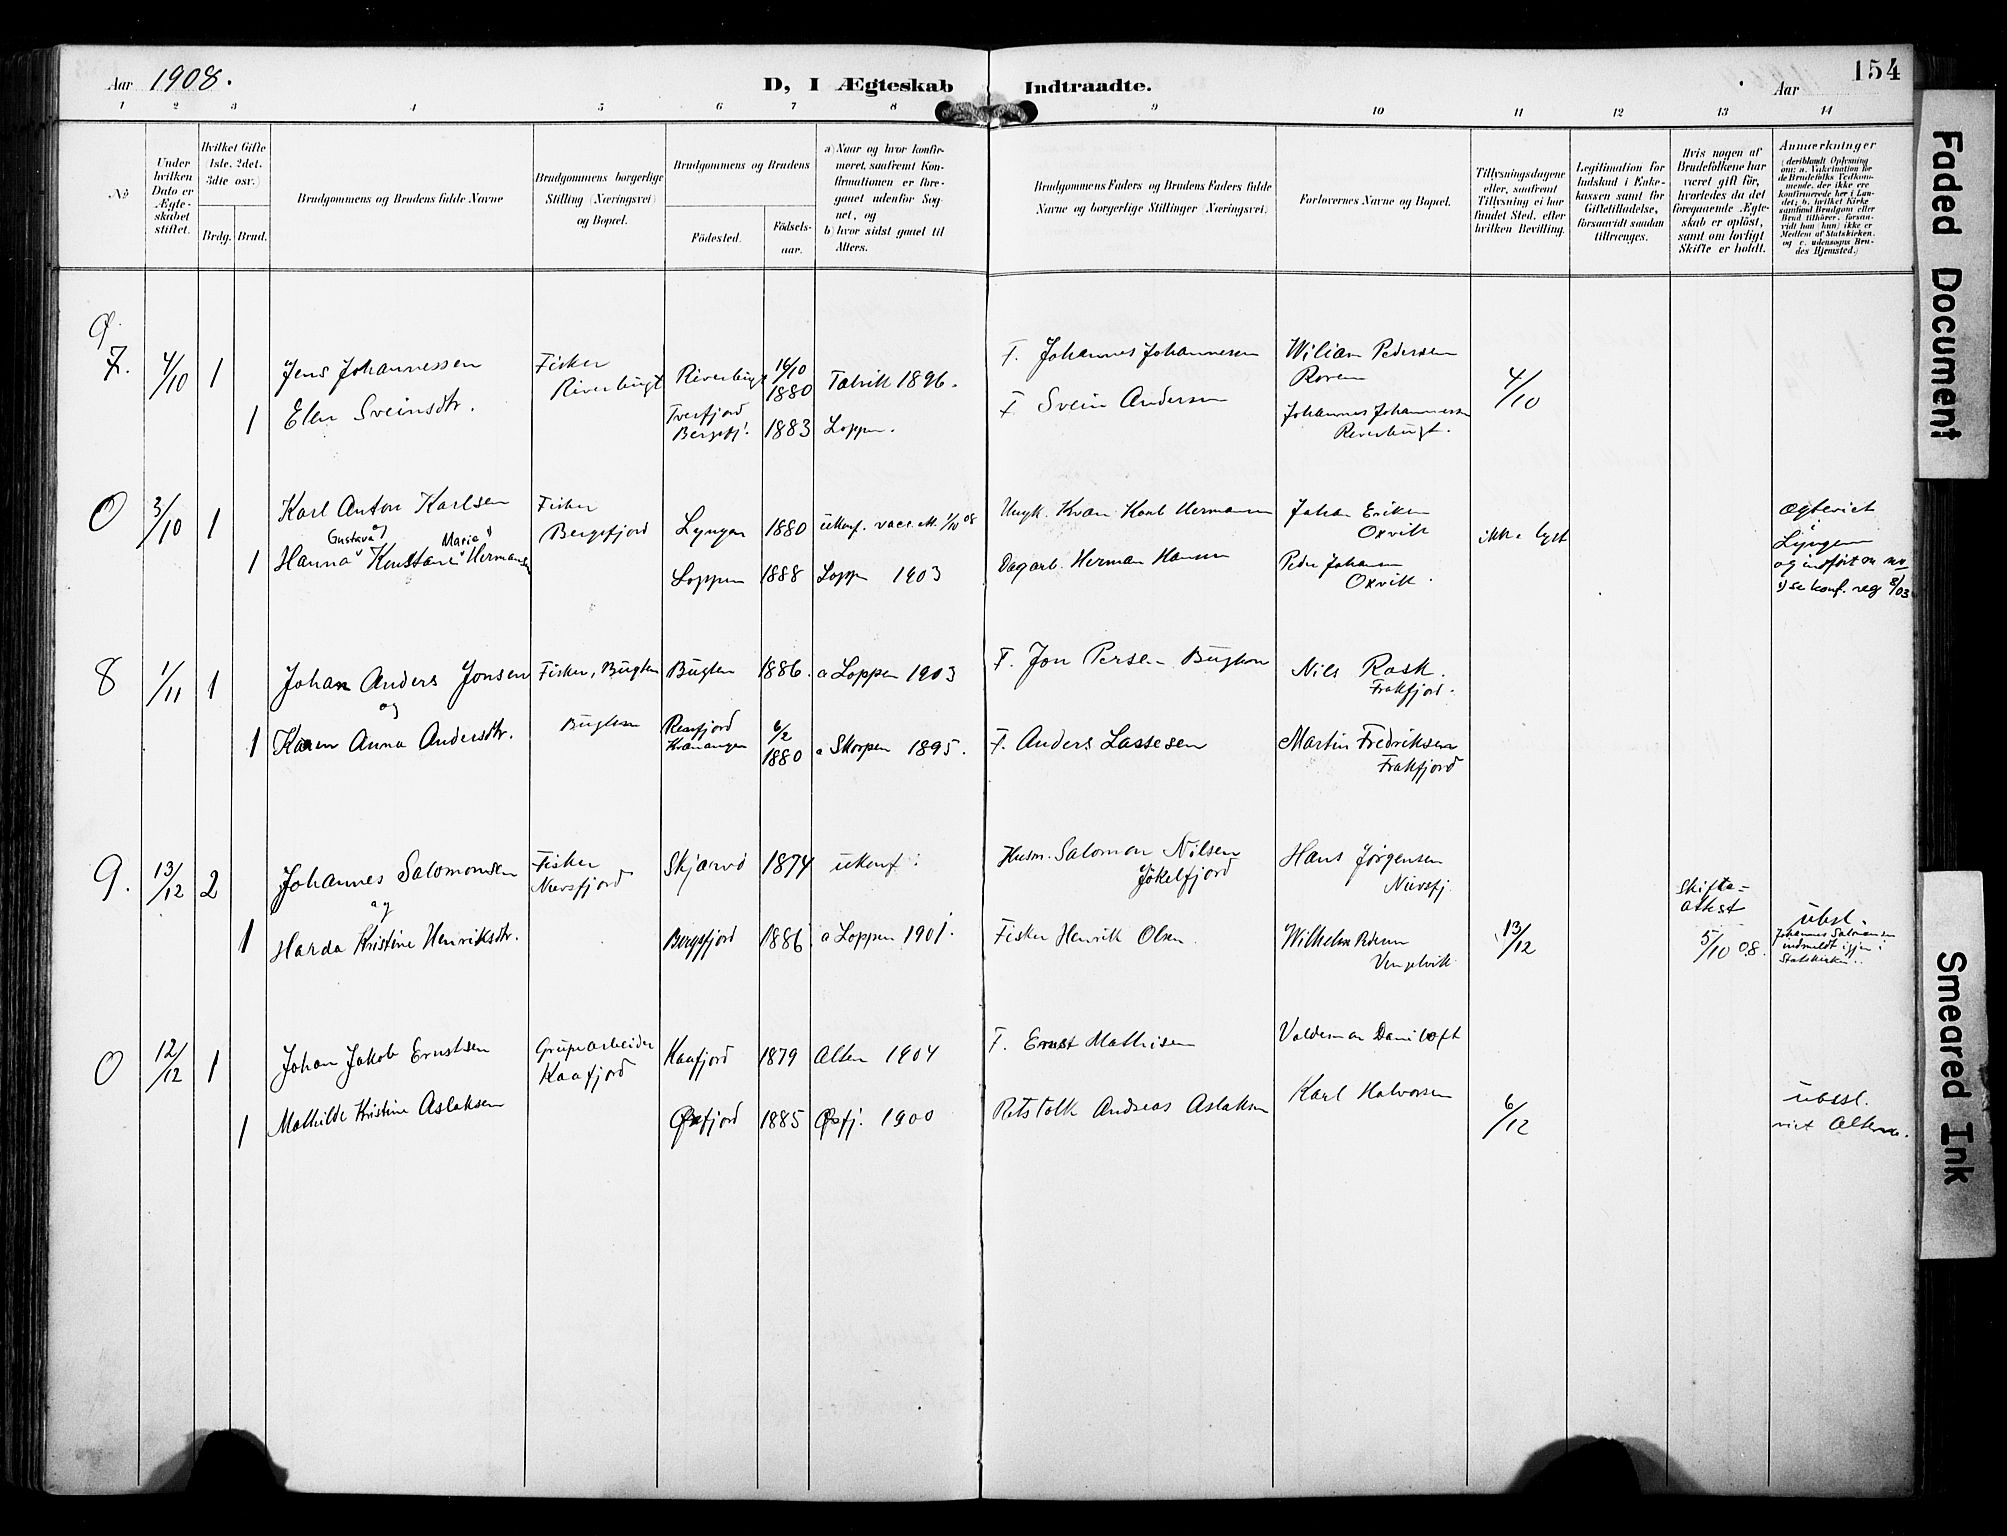 Aar 1908.
D, I Ægteskab Indtraadte.
Aar
154
1 2 3 4 5 6 7 8 9 10 11 12 13 14
No
Under hvilken Dato er Ægteskabet stiftet.
Hvilket Gifte (1ste, 2det, 3die osv.)
Brdg. Brud.
Brudgommens og Brudens fulde Navne
Brudgommens borgerlige Stilling (Næringsvei) og Bopæl.
Brudgommens og Brudens
Fødested.
Fødselsaar.
a) Naar og hvor konfirmeret, saafremt Konfirmationen er foregaaet udenfor Sognet, og
b) hvor sidst gaaet til Alters.
Brudgommens Faders og Brudens Faders fulde Navne og borgerlige Stillinger (Næringsvei).
Forlovernes Navne og Bopæl.
Tillysningsdagene eller, saafremt Tillysning ei har fundet Sted, efter hvilken Bevilling.
Legitimation for Indskud i Enkekassen samt for Giftetilladelse, forsaavidt saadan tiltrænges.
Hvis nogen af Brudefolkene har været gift før, hvorledes da det foregaaende Ægteskab er opløst, samt om lovligt Skifte er holdt.
Anmærkninger
(deriblandt Oplysning om: a. Vakcination for de Brudefolks Vedkommende, der ikke ere konfirmerede her i Landet; b. hvilket Kirkesamfund Brudgom eller Brud tilhører, forsaavidt han (hun) ikke er Medlem af Statskirken, og c. udensogns Brudes Hjemsted.)
7. 4/10 1 Jens Johannessen Fisker Riverbugt Riverbugt 16/10 1880 Talvik 1896. F. Johannes Johannesen Wiliam Pedersen
1 Elen Sveinsdtr. Tverfjord Bergsfj. 1883 Loppen. F. Svein Andersen Johannes Johannessen Riverbugt. 4/10
0 3/10 1 Karl Anton Karlsen Fisker Bergsfjord Lyngen 1880 ukonf. vacc. att. 1/10 08 Ungk. Kvæn Karl Hermansen Johan Eriksen Oxvik ikke lyst
og
Gustava Marie
1 Hanna Konstanse Hermansen Loppen 1888 Loppen 1903 Dagarb. Herman Hansen Peder Johansen Oxvik.
Ægteviet i Lyngen og indført
se konf. reg 8/03
8 1/11 1 Johan Anders Jonsen Fisker, Bugten Bugten 1886. a Loppen 1903 F. Jon Persen Bugten Nils Rask. Frakfjord.
og
1 Karen Anna Andersdtr. Bugten Reinfjord Kvænangen 6/2 1880 a Skorpen 1895. F. Anders Lassesen Martin Fredriksen Frakfjord
9. 13/12 2 Johannes Salomonsen Fisker Nuvsfjord Skjærvø 1874 ukonf. Husm. Salomon Nilsen Jøkelfjord Hans Jørgensen Nuvsfj.
og
1 Harda Kristine Henriksdtr. Bergsfjord 1886 a Loppen 1901. Fisker Henrik Olsen. Wilhelm Pedersen 13/12 Skifteattest 5/10 08. ubesl.
Johannes Salomonsen indmeldt igjen i Statskirken.
0 12/12 1 Johan Jakob Ernstsen Grubearbeider Kaafjord Kaafjord 1879 Alten 1904 F. Ernst Mathisen Valdemar Daniloft
1 Mathilde Kristine Aslaksen Øxfjord 1885 Øxfj. 1900 Retstolk Andreas Aslaksen Karl Halvorsen 6/12 ubesl. viet Alten.
Faded Document
Smeared Ink